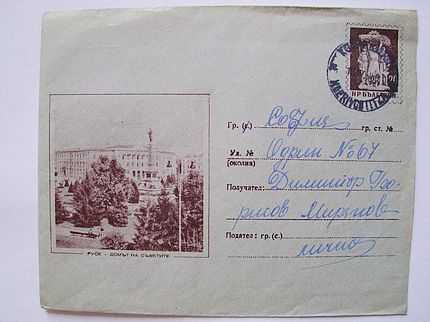 НР БЪЛГАРИЯ
Гр. (с.) София гр. ст. №
Ул. № Одрин № 67
(околия)
Получател: Димитър Гео-
ргиев
Подател: гр. (с.)
лично
РУСЕ - ДОМЪТ НА СЪВЕТИТЕ